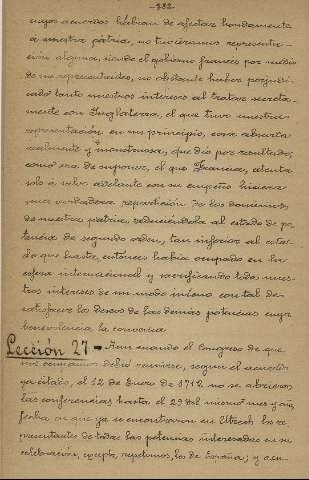 -232-
cuyos acuerdos habian de afectar hondamente
á nuestra pátria, no tuvieramos representa-
ción alguna, siendo el gobierno frances por medio
de sus representantes, no obstante haber perjudi-
cado tanto nuestros intereses al tratar secreta-
mente con Inglaterra, el que tuvo nuestra
representación en un principio, cosa absurda
realmente y monstruosa, que dió por resultado,
como era de suponer, el que Francia, atenta
solo á salir adelante con su empeño hiciera
una verdadera repartición de los dominios
de nuestra pátria, reduciéndola al estado de po-
tencia de segundo orden, tan inferior al esta-
do que hasta entonces habia ocupado en la
esfera internacional y sacrificando todos nues-
tros intereses de un modo inicuo con tal de
satisfacer los deseos de las demás potencias cuya
benevolencia la convenia
Lección 27 = Aun cuando el Congreso de que
nos ocupamos debió reunirse, segun el acuerdo
ya citado, el 12 de Enero de 1712 no se abrieron
las conferencias hasta el 29 del mismo mes y año,
fecha en que ya se encontraron en Utrech los re-
presentantes de todas las potencias interesadas en su
celebración, excepto, repetimos, los de España; y acu-